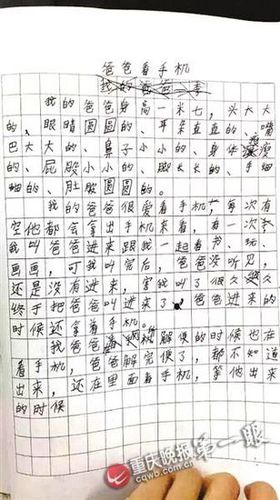 爸爸看手机
我的爸爸身高一米七,头大大
的、眼睛圆圆的、耳朵直直的、嘴
巴大大的、鼻子小小的、身体
的、屁股小小的、脚长长的、手细
细的、肚皮圆圆的。
我的爸爸很爱看手机,每次有
空他都会拿出手机来看,有一次
我叫爸爸进来跟我一起看书、玩
画画,可我叫完后,爸爸没听见,
还是没有进来,害我叫了很久
终于把爸爸叫进来了,爸爸进来的
时候还拿着手机。
我爸爸解便的时候也在
看手机,爸爸解完便了,都不知道
出来,还在里面看手机,等他出来
的时候
重庆晚报第一眼
www.cqwb.com.cn